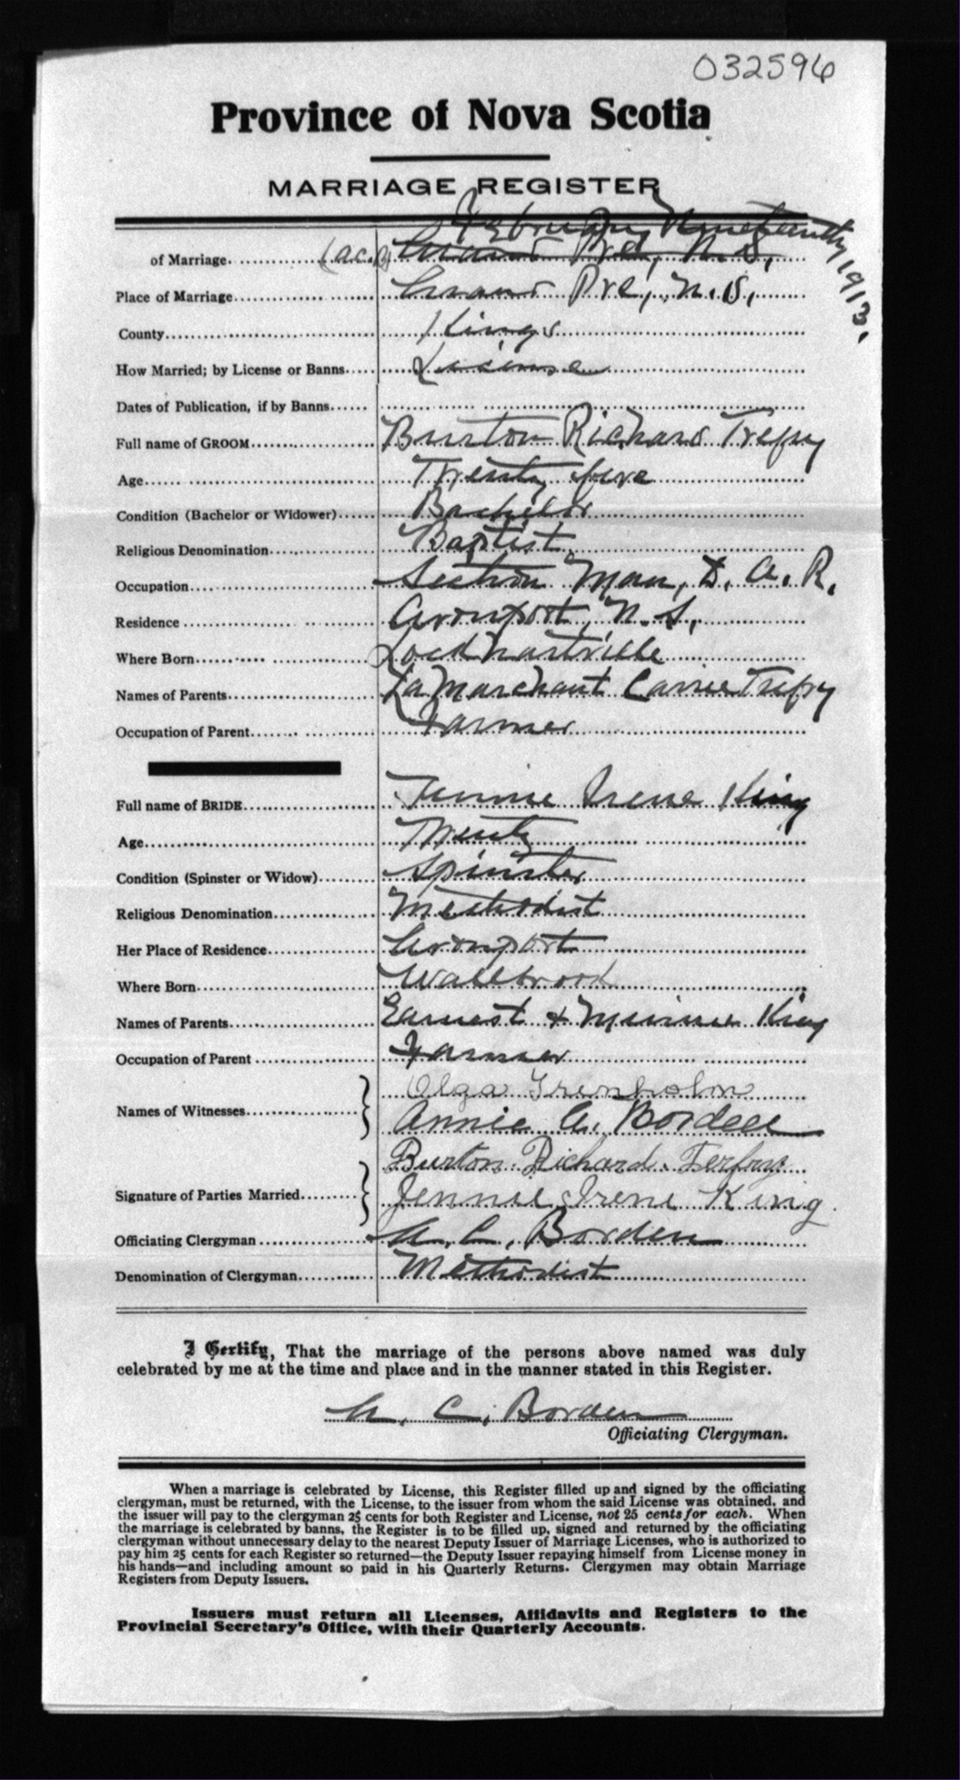 032596
Province of Nova Scotia
MARRIAGE REGISTER
February Nineteenth, 1913.
of Marriage. Grand Pré, N.S,
Place of Marriage Grand Pre, N.S,
County Kings
How Married; by License or Banns License
Dates of Publication, if by Banns
Full name of GROOM Burton Richard Trefry
Age Twenty five
Condition (Bachelor or Widower) Bachelor
Religious Denomination Baptist
Occupation Section Man, D. A. R.
Residence Avonport, N.S,
Where Born Lockhartville
Names of Parents La Marchant Carrie Trefry
Occupation of Parent Farmer
Full name of BRIDE Jennie Irene King
Age Twenty
Condition (Spinster or Widow) Spinster
Religious Denomination Methodist
Her Place of Residence Avonport
Where Born Wallbrook
Names of Parents Earnest & Minnie King
Occupation of Parent Farmer
Names of Witnesses Olga Trenholm
Annie A. Borden
Burton Richard. Terfry
Signature of Parties Married Jennie Irene King
Officiating Clergyman A. C. Borden
Denomination of Clergyman Methodist
I Certify, That the marriage of the persons above named was duly
celebrated by me at the time and place and in the manner stated in this Register.
A. C. Borden
Officiating Clergyman.
When a marriage is celebrated by License, this Register filled up and signed by the officiating
clergyman, must be returned, with the License, to the issuer from whom the said License was obtained, and
the issuer will pay to the clergyman 25 cents for both Register and License, not 25 cents for each. When
the marriage is celebrated by banns, the Register is to be filled up, signed and returned by the officiating
clergyman without unnecessary delay to the nearest Deputy Issuer of Marriage Licenses, who is authorized to
pay him 25 cents for each Register so returned—the Deputy Issuer repaying himself from License money in
his hands—and including amount so paid in his Quarterly Returns. Clergymen may obtain Marriage
Registers from Deputy Issuers.
Issuers must return all Licenses, Affidavits and Registers to the
Provincial Secretary's Office, with their Quarterly Accounts.